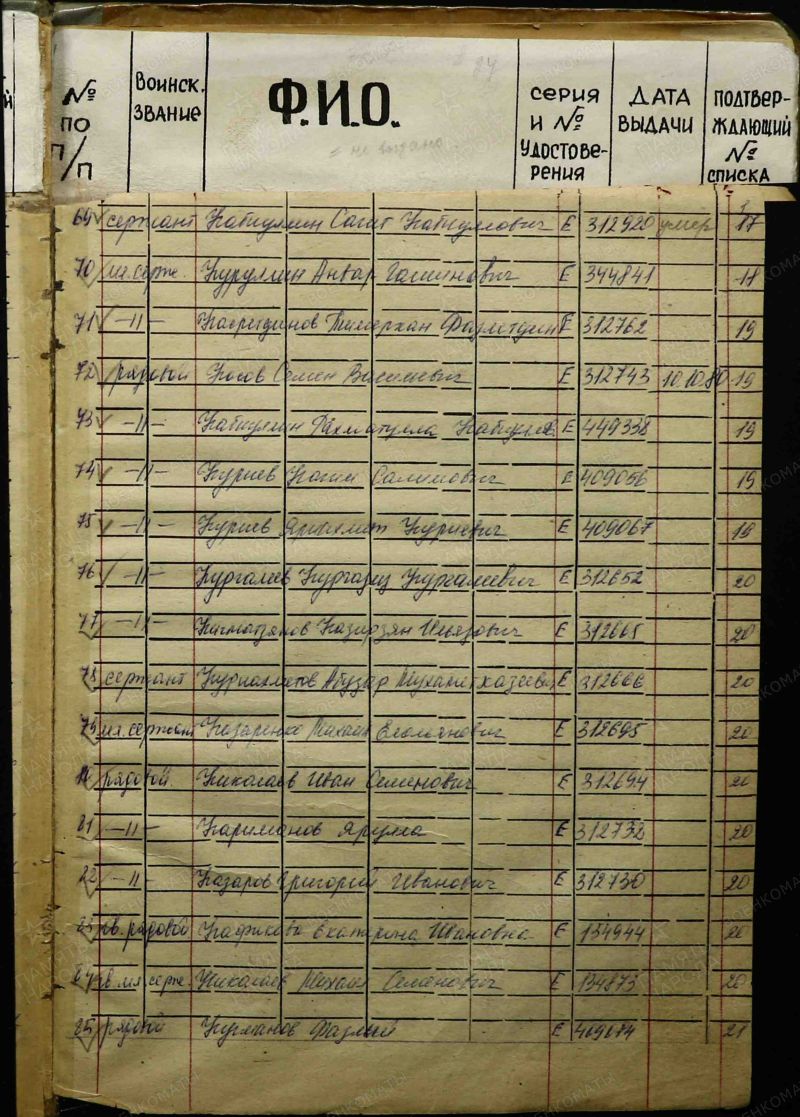 № ПО П/П
ВОИНСК. ЗВАНИЕ
Ф.И.О.
СЕРИЯ И № УДОСТОВЕРЕНИЯ
ДАТА ВЫДАЧИ
ПОДТВЕРЖДАЮЩИЙ № СПИСКА
= не выдано.
69 сержант Набиуллин Сагит Набиуллович Е 312920 умер 17
70 мл. серж. Нуруллин Анвар Е 344841 18
71 —"— Насретдинов Тимерхан Е 312762 19
72 рядовой Носов Семен Васильевич Е 312743 10.10.80 19
73 —"— Набиуллин Рахматулла Е 449338 19
74 —"— Нуриев Салимович Е 409056 19
75 —"— Нуриев Нуриевич Е 409067 19
76 —"— Нургалеев Нургаяз Нургалеевич Е 312652 20
77 —"— Нигматзянов Назирзян Ильязович Е 312665 20
78 сержант Нуриахметов Абузар Е 312666 20
79 мл. сержант Назаренко Михаил Емельянович Е 312695 20
80 рядовой Николаев Иван Семенович Е 312694 20
81 —"— Нариманов Ярулла Е 312732 20
82 —"— Назаров Григорий Иванович Е 312730 20
83 гв. рядовой Нафикова Екатерина Ивановна Е 134944 20
84 гв. мл. серж. Николаев Михаил Семенович Е 134873 20
85 рядовой Нурманов Фазлый Е 409074 21